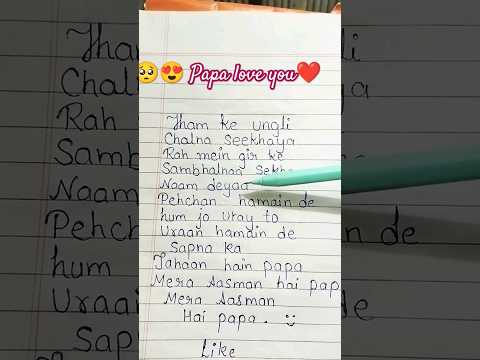 🥺😍 Papa love you❤️
Tham ke ungli
Chalna Seekhaya
Rah mein gir ke
Sambhalnaa
Naam deyaa
Pehchan hamain de
hum jo Uray to
Uraan hamain de
Sapna ka
Jahaan hain papa
Mera Aasman hai pap
Mera Aasman
Hai papa. :)
Like